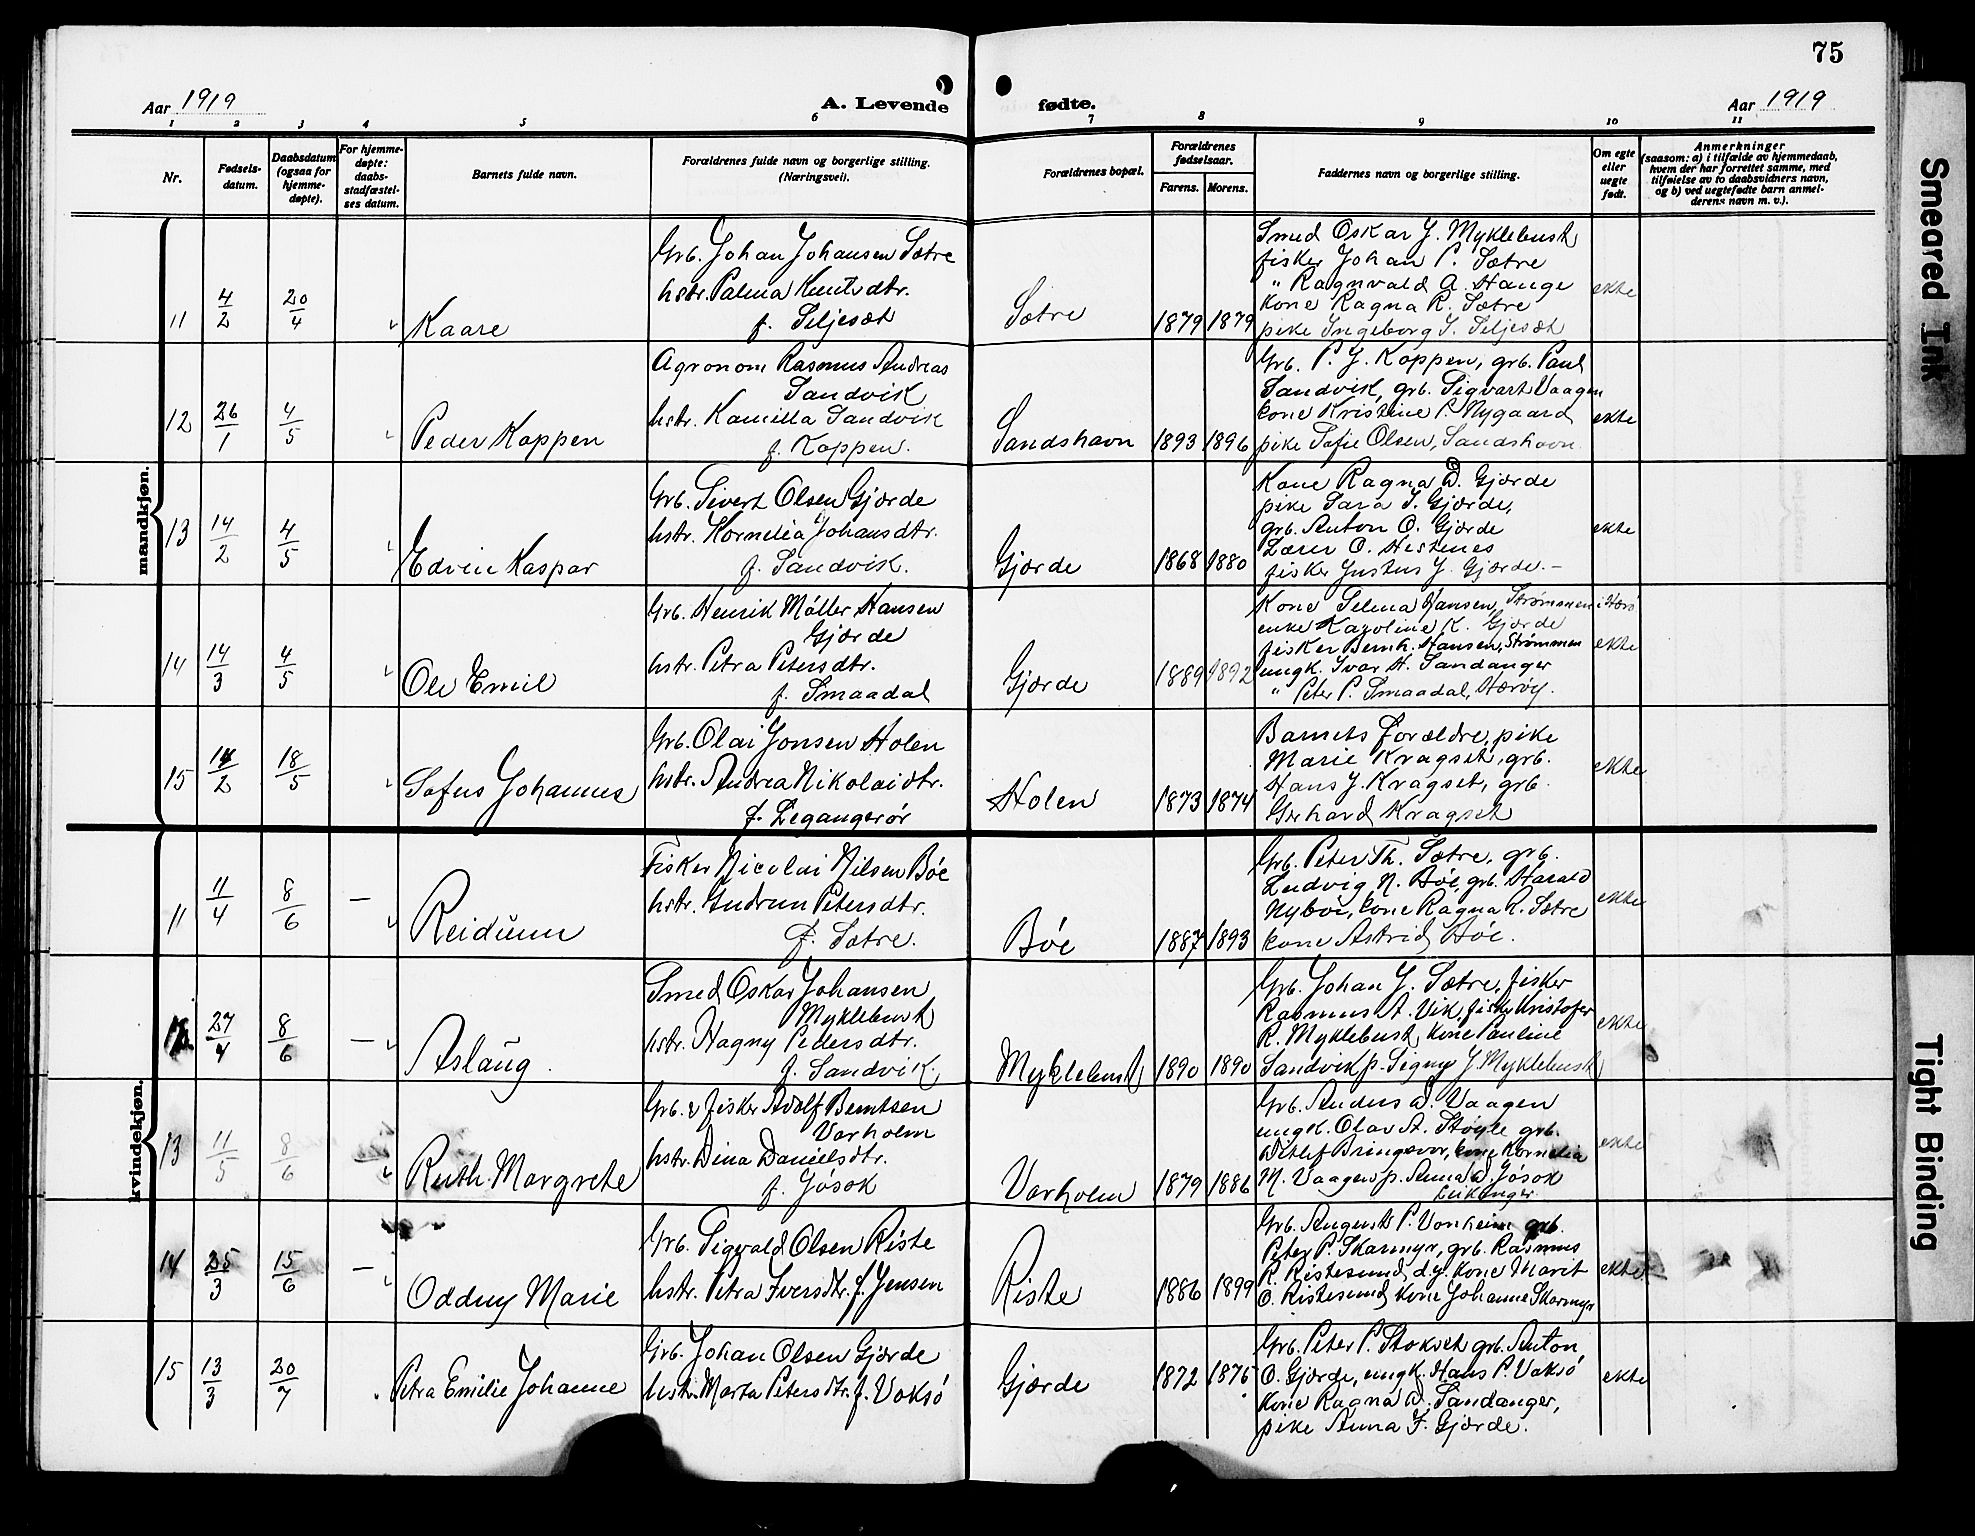 75
Aar 1919
A. Levende
fødte.
Aar 1919
1 2 3 4 5 6 7 8 9 10 11
Nr.
Fødsels-
datum.
Daabsdatum
(ogsaa for
hjemme-
døpte).
For hjemme-
døpte:
daabs-
stadfæstel-
ses datum.
Barnets fulde navn.
Forældrenes fulde navn og borgerlige stilling.
(Næringsvei).
Forældrenes bopæl.
Forældrenes
fødselsaar.
Farens. Morens.
Faddernes navn og borgerlige stilling.
Om egte
eller
uegte
født.
Anmerkninger
(saasom: a) i tilfælde av hjemmedaab,
hvem der har forrettet samme, med
tilføielse av to daabsvidners navn,
og b) ved uegtefødte barn anmel-
derens navn m. v.).
mandkjøn.
11 4/2 20/4 Kaare
Grb. Johan Johansen Sætre
hstr. Palma Knutsdtr.
f. Seljesæt
Sætre 1879 1879
Smed Oskar J. Myklebust
fisker Johan P. Sætre
" Ragnvald A. Hauge
Kone Ragna R. Sætre
pike Ingeborg S. Seljesæt
ekte
12 26/1 4/5 Peder Koppen
Agronom Rasmus Andreas
Sandvik
hstr. Kamilla Sandvik
f. Koppen.
Sandshavn 1893 1896
Grb. P. J. Koppen, grb. Paul
Sandvik, grb. Sigvart Vaagen
kone Kristine P. Nygaard
pike Sofie Olsen, Sandshavn
ekte
13 14/2 4/5 Edvin Kaspar
Grb. Sivert Olsen Gjærde
hstr. Kornelia Johansdtr.
f. Sandvik.
Gjærde 1868 1880
Kone Ragna D. Gjærde
pike Sara S. Gjærde,
grb. Anton O. Gjærde
Lærer O. Hestenes
fisker Justus J. Gjærde. –
ekte
14 14/3 4/5 Ole Emil
Grb. Henrik Møller Hansen
Gjærde
hstr. Petra Petersdtr.
f. Smaadal
Gjærde 1889 1892
Kone Selma Hansen, Strømmen i Herø
enke Karoline K. Gjærde
fisker Bernh. Hansen, Strømmen
ungk. Ivar H. Sandanger
" Peter P. Smaadal, Herøy.
ekte
15 /2 18/5 Sofus Johannes
Grb. Olai Jonsen Holen
hstr. Andrea Nikolaidtr.
f. Legangerør
Holen 1873 1874
Barnets forældre, pike
Marie Kragset, grb.
Hans J. Kragset, grb.
Gerhard Kragset
ekte
kvindekjøn.
11 11/4 8/6 — Reidunn
Fisker Nicolai Nilsen Bøe
hstr. Gudrun Petersdtr.
f. Sætre.
Bøe 1887 1893
Grb. Peter Th. Sætre, grb.
Ludvig N. Bøe, grb. Harald
Nybøe, kone Ragna R. Sætre
kone Astrid Bøe.
ekte
12 27/4 8/6 — Aslaug
Smed Oskar Johansen
Myklebust
hstr. Hagny Pedersdtr.
f. Sandvik.
Myklebust 1890 1890
Grb. Johan J. Sætre, fisker
Rasmus A. Vik, fisker Kristofer
R. Myklebust, kone Pauline
Sandvik p. Signy J. Myklebust
ekte
13 11/5 8/6 Ruth Margrete
Grb. & fisker Adolf Berntsen
Varholm
hstr. Dina Danielsdtr.
f. Jøsok
Varholm 1879 1886
Grb. Anders A. Vaagen
ungk. Olav A. Støyle grb.
Ditlef Bringsvor, kone Kornelia
M. Vaagen p. Anna D. Jøsok
Leikanger
ekte
14 25/3 15/6 — Oddny Marie
Grb. Sigvald Olsen Riste
hstr. Petra Iversdtr. f. Jensen
Riste 1886 1899
Grb. August P. Vonheim grb.
Peter P. Skarmyr, grb. Rasmus
R. Ristesund d.y. kone Marit
O. Ristesund kone Johanne Skarmyr
ekte
15 13/3 20/7 Petra Emilie Johanne
Grb. Johan Olsen Gjærde
hstr. Marta Petersdtr. f. Voksø
Gjærde 1872 1876
Grb. Peter P. Stokset grb. Anton
O. Gjærde, ungk. Hans P. Voksø
Kone Ragna D. Sandanger,
pike Anna J. Gjærde.
ekte
Smeared Ink
Tight Binding